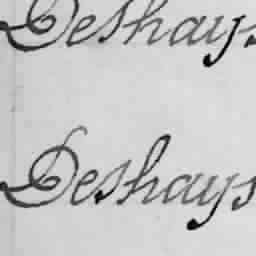 Deshays
Deshays